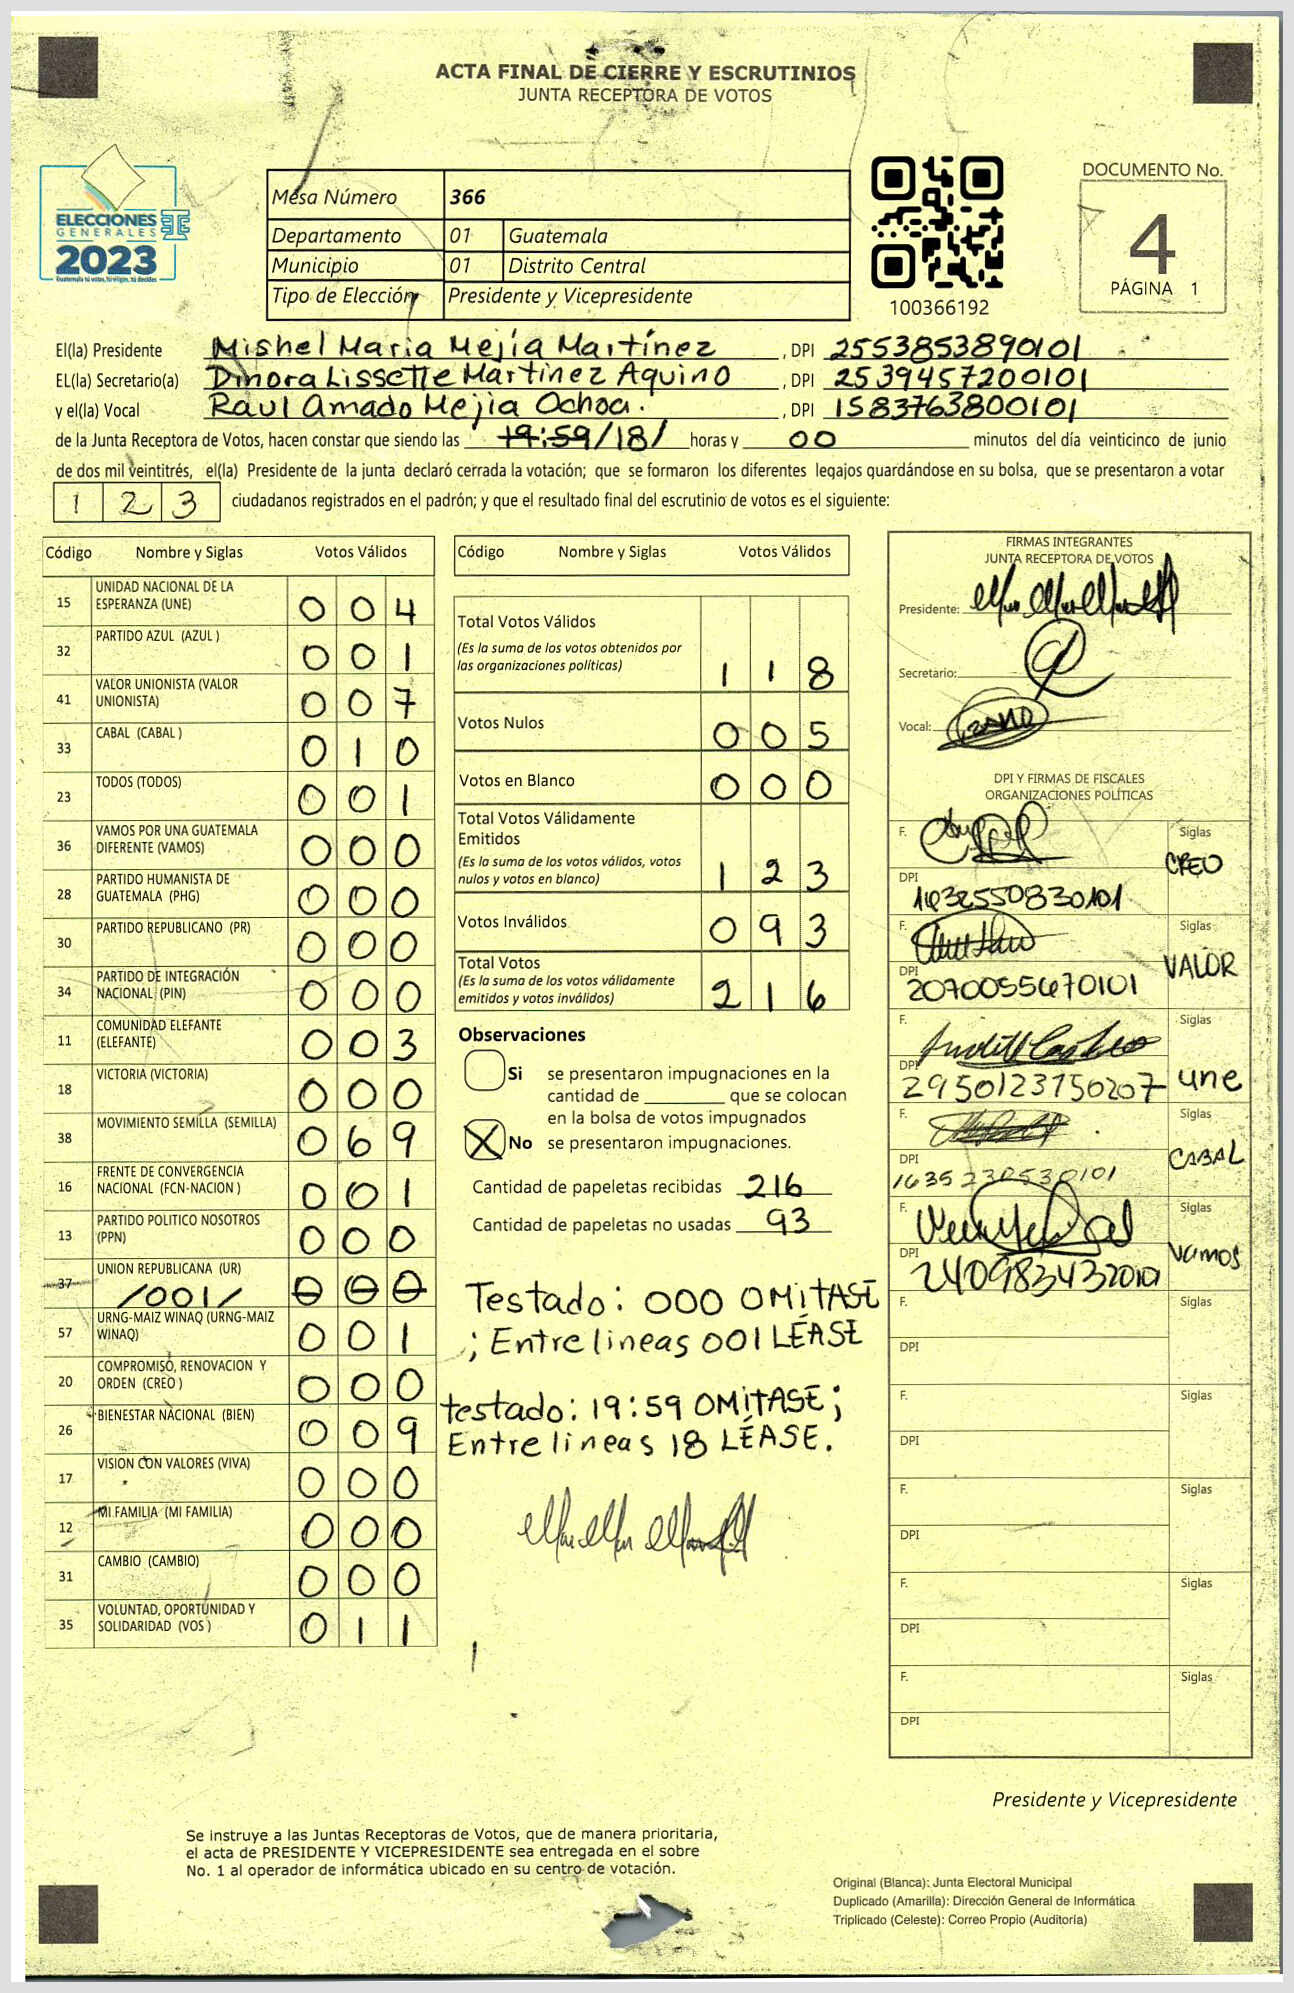 ACTA FINAL DE CIERRE Y ESCRUTINIOS
JUNTA RECEPTORA DE VOTOS
ELECCIONES
GENERALES
2023
Guatemala tú votas, tú eliges, tú decides
Mesa Número 366
Departamento 01 Guatemala
Municipio 01 Distrito Central
Tipo de Elección Presidente y Vicepresidente
100366192
DOCUMENTO No.
4
PÁGINA 1
El(la) Presidente Mishel Maria Mejía Martínez , DPI 2553853890101
EL(la) Secretario(a) Dinora Lissette Martinez Aquino , DPI 2539457200101
y el(la) Vocal Raul Amado Mejia Ochoa. , DPI 1583763800101
de la Junta Receptora de Votos, hacen constar que siendo las 19:59/18/ horas y 00 minutos del día veinticinco de junio
de dos mil veintitrés, el(la) Presidente de la junta declaró cerrada la votación; que se formaron los diferentes legajos guardándose en su bolsa, que se presentaron a votar
1 2 3 ciudadanos registrados en el padrón; y que el resultado final del escrutinio de votos es el siguiente:
Código Nombre y Siglas Votos Válidos
15 UNIDAD NACIONAL DE LA ESPERANZA (UNE) 0 0 4
32 PARTIDO AZUL (AZUL ) 0 0 1
41 VALOR UNIONISTA (VALOR UNIONISTA) 0 0 7
33 CABAL (CABAL ) 0 1 0
23 TODOS (TODOS) 0 0 1
36 VAMOS POR UNA GUATEMALA DIFERENTE (VAMOS) 0 0 0
28 PARTIDO HUMANISTA DE GUATEMALA (PHG) 0 0 0
30 PARTIDO REPUBLICANO (PR) 0 0 0
34 PARTIDO DE INTEGRACIÓN NACIONAL (PIN) 0 0 0
11 COMUNIDAD ELEFANTE (ELEFANTE) 0 0 3
18 VICTORIA (VICTORIA) 0 0 0
38 MOVIMIENTO SEMILLA (SEMILLA) 0 6 9
16 FRENTE DE CONVERGENCIA NACIONAL (FCN-NACION ) 0 0 1
13 PARTIDO POLITICO NOSOTROS (PPN) 0 0 0
37 UNION REPUBLICANA (UR) /001/ 0 0 0
57 URNG-MAIZ WINAQ (URNG-MAIZ WINAQ) 0 0 1
20 COMPROMISO, RENOVACION Y ORDEN (CREO ) 0 0 0
26 BIENESTAR NACIONAL (BIEN) 0 0 9
17 VISION CON VALORES (VIVA) 0 0 0
12 MI FAMILIA (MI FAMILIA) 0 0 0
31 CAMBIO (CAMBIO) 0 0 0
35 VOLUNTAD, OPORTUNIDAD Y SOLIDARIDAD (VOS ) 0 1 1
Código Nombre y Siglas Votos Válidos
Total Votos Válidos
(Es la suma de los votos obtenidos por
las organizaciones políticas) 1 1 8
Votos Nulos 0 0 5
Votos en Blanco 0 0 0
Total Votos Válidamente
Emitidos
(Es la suma de los votos válidos, votos
nulos y votos en blanco) 1 2 3
Votos Inválidos 0 9 3
Total Votos
(Es la suma de los votos válidamente
emitidos y votos inválidos) 2 1 6
Observaciones
Si se presentaron impugnaciones en la
cantidad de ________ que se colocan
en la bolsa de votos impugnados
X No se presentaron impugnaciones.
Cantidad de papeletas recibidas 216
Cantidad de papeletas no usadas 93
Testado: 000 OMíTASE
; Entre lineas 001 LÉASE
testado: 19:59 OMíTASE;
Entre lineas 18 LÉASE.
FIRMAS INTEGRANTES
JUNTA RECEPTORA DE VOTOS
Presidente:
Secretario:
Vocal:
DPI Y FIRMAS DE FISCALES
ORGANIZACIONES POLÍTICAS
F. Siglas CREO
DPI 1632550830101
F. Siglas VALOR
DPI 2070055670101
F. Siglas une
DPI 2950123750207
F. Siglas CABAL
DPI 1635230530101
F. Siglas Vamos
DPI 2409834320101
F. Siglas
DPI
F. Siglas
DPI
F. Siglas
DPI
F. Siglas
DPI
F. Siglas
DPI
Presidente y Vicepresidente
Se instruye a las Juntas Receptoras de Votos, que de manera prioritaria,
el acta de PRESIDENTE Y VICEPRESIDENTE sea entregada en el sobre
No. 1 al operador de informática ubicado en su centro de votación.
Original (Blanca): Junta Electoral Municipal
Duplicado (Amarilla): Dirección General de Informática
Triplicado (Celeste): Correo Propio (Auditoría)